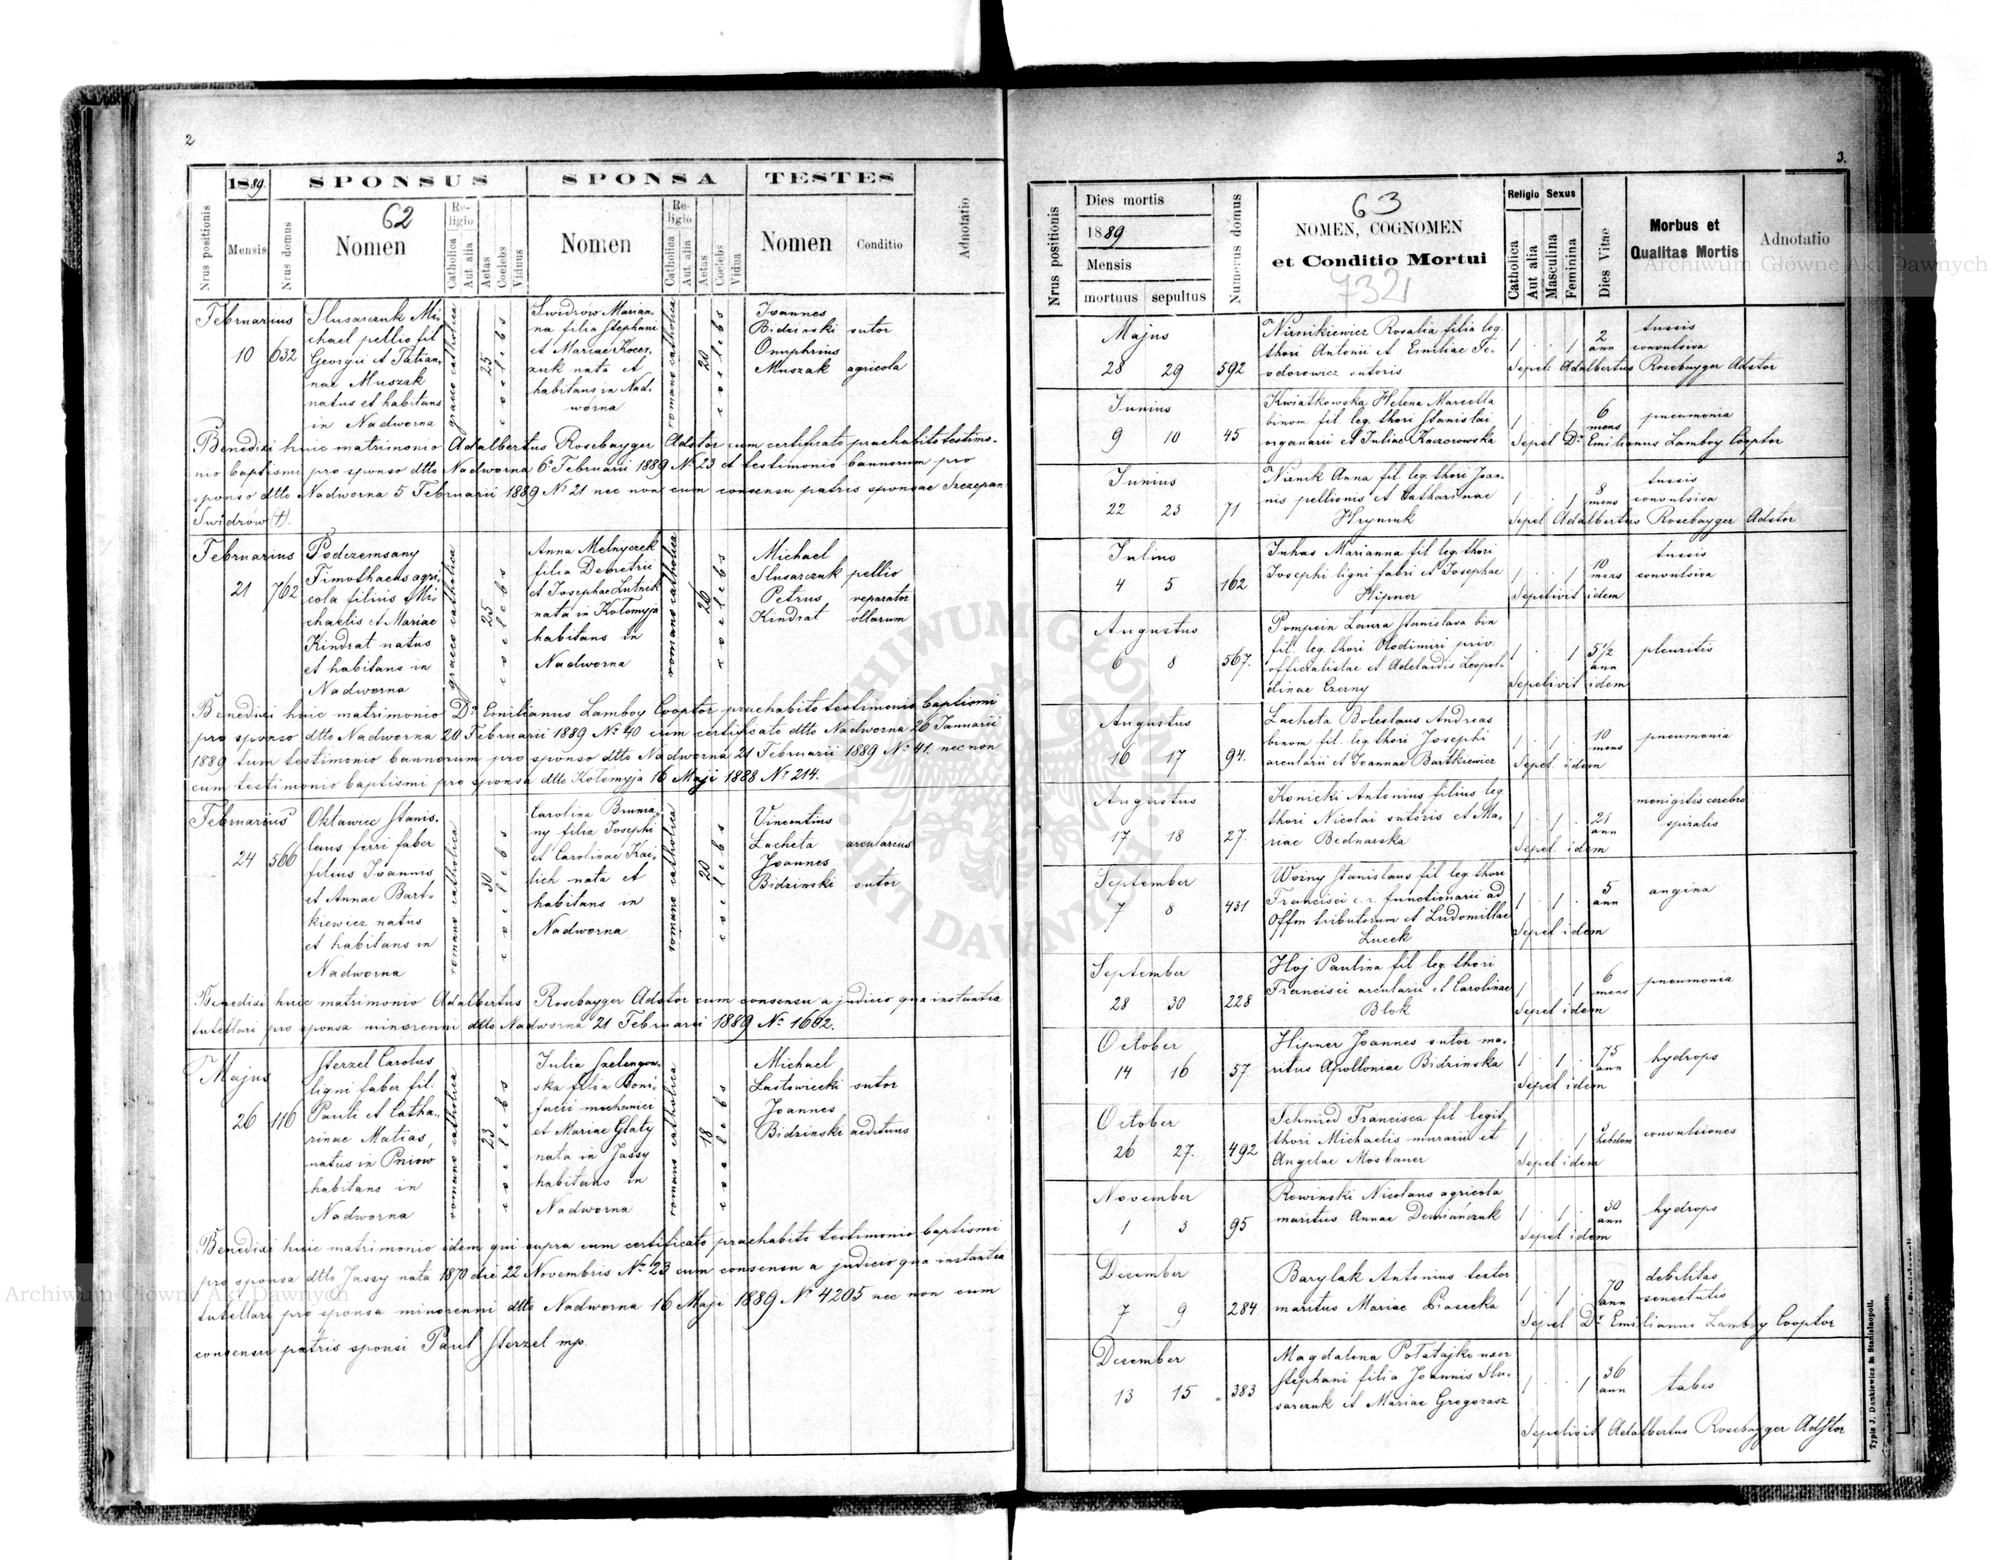 2
1889.
SPONSUS
SPONSA
TESTES
Nrus positionis
Mensis
Nrus domus
62
Nomen
Religio
Catholica
Aut alia
Aetas
Coelebs
Viduus
Nomen
Religio
Catholica
Aut alia
Aetas
Coelebs
Vidua
Nomen
Conditio
Adnotatio
Februarius
10
632
Slusarczuk Mi-
chael pellio fil
Georgii et Tatian-
nae Muszak
natus et habitans
in Nadworna
graeco catholica
25
coelebs
Swidrów Marian-
na filia Stephani
et Mariae Koces-
zuk nata et
habitans in Nad-
worna
romano catholica
20
coelebs
Joannes
Bidzinski sutor
Onuphrius
Muszak agricola
Benedixi huic matrimonio Adalbertus Rosebayger Adstor cum certificato praehabito testimo-
nio baptismi pro sponso dtto Nadworna 6 Februarii 1889 No 23 et testimonio bannorum pro
sponso dtto Nadworna 5 Februarii 1889 No 21 nec non cum consensu patris sponsae Szczepan
Swidrów (+).
Februarius
21
762
Podczemsany
Timothaeus agri-
cola filius Mi-
chaelis et Mariae
Kindrat natus
et habitans in
Nadworna
graeco catholica
25
coelebs
Anna Melnyczek
filia Demetrii
et Josephae Lutnik
nata in Kołomyja
habitans in
Nadworna
romano catholica
26
coelebs
Michael
Slusarczuk pellio
Petrus reparator
Kindrat ollarum
Benedixi huic matrimonio Dr Emilianus Lamboy Cooptor praehabito testimonio baptismi
pro sponso dtto Nadworna 20 Februarii 1889 No 40 cum certificato dtto Nadworna 26 Januarii
1889 tum testimonio bannorum pro sponso dtto Nadworna 21 Februarii 1889 No 41. nec non
cum testimonio baptismi pro sponsa dtto Kołomyja 16 Maji 1888 No 214.
Februarius
24
566
Oktawiec Stanis-
laus ferri faber
filius Joannis
et Annae Bart-
kiewicz natus
et habitans in
Nadworna
romano catholica
30
coelebs
Carolina Bruma
ny filia Josephi
et Carolinae Kai-
lich nata et
habitans in
Nadworna
romano catholica
20
coelebs
Vincentius
Lacheta arcularius
Joannes
Bidzinski sutor
Benedixi huic matrimonio Adalbertus Rosebayger Adstor cum consensu a judicio qua instantia
tutellari pro sponsa minorenni dtto Nadworna 21 Februarii 1889 No 1602.
Majus
26
116
Sterzel Carolus
ligni faber fil.
Pauli et Catha-
rinae Matias,
natus in Pniow
habitans in
Nadworna
romano catholica
23
coelebs
Julia Szelengow-
ska filia Boni-
facii mechanici
et Mariae Glaty
nata in Jassy
habitans in
Nadworna
romano catholica
18
coelebs
Michael
Lastowiecki sutor
Joannes
Bidzinski aedituus
Benedixi huic matrimonio idem qui supra cum certificato praehabito testimonio baptismi
pro sponsa dtto Jassy nata 1870 die 22 Novembris No 23 cum consensu a judicio qua instantia
tutellari pro sponsa minorenni dtto Nadworna 16 Maji 1889 No 4205 nec non cum
consensu patris sponsi Paul Sterzel mp.
3.
Nrus positionis
Dies mortis
1889
Mensis
mortuus sepultus
Numerus domus
63
NOMEN, COGNOMEN
et Conditio Mortui
732
Religio
Sexus
Catholica
Aut alia
Masculina
Feminina
Dies Vitae
Morbus et
Qualitas Mortis
Adnotatio
Majus
28 29 592
Nirnikiewicz Rosalia filia leg.
thori Antonii et Emiliae Te-
odorowicz sutoris
1 . . 1
2 ann
tussis
convulsiva
Sepel: Adalbertus Rosebayger Adstor
Junius
9 10 45
Kwiatkowska Helena Marcella
binom fil. leg. thori Stanislai
organarii et Juliae Kaczorowska
1 . . 1
6 mens
pneumonia
Sepel Dr Emilianus Lamboy Cooptor
Junius
22 23 71
Nirnik Anna fil leg. thori Joan-
nis pellionis et Catharinae
Hryniuk
1 . . 1
8 mens
tussis
convulsiva
Sepel Adalbertus Rosebayger Adstor
Julius
4 5 162
Juhas Marianna fil leg. thori
Josephi ligni fabri et Josephae
Hipner
1 . . 1
10 mens
tussis
convulsiva
Sepelivit idem
Augustus
6 8 567.
Pompein Laura Stanislava bin
fil. leg. thori Vlodimiri priv.
officialistae et Adelaidis Leopol-
dinae Czerny
1 . . 1
5 1/2 ann
pleuritis
Sepelivit idem
Augustus
16 17 94.
Lacheta Boleslaus Andreas
binom. fil. leg. thori Josephi
arcularii et Joannae Bartkiewicz
1 . 1 .
10 mens
pneumonia
Sepel idem
Augustus
17 18 27.
Konicki Antonius filius leg
thori Nicolai sutoris et Ma-
riae Bednarska
1 . 1 .
21 ann
menigitis cerebro
spiralis
Sepel idem
September
7 8 431
Wozny Stanislaus fil leg. thori
Francisci c. r. functionarii ad
Offm tributorum et Ludomillae
Lucek
1 . 1 .
5 ann
angina
Sepel idem
September
28 30 228
Hoj Paulina fil leg. thori
Francisci arcularii et Carolinae
Blok
1 . . 1
6 mens
pneumonia
Sepel idem
October
14 16 57
Hipner Joannes sutor ma-
ritus Apolloniae Bidzinska
1 . 1 .
75 ann
hydrops
Sepel idem
October
26 27. 492
Schmied Francisca fil legit,
thori Michaelis murarii et
Angelae Mosbauer
1 . . 1
hebdom
convulsiones
Sepel idem
November
1 3 95
Rewinski Nicolaus agricola
maritus Annae Demiańczuk
1 . 1 .
30 ann
hydrops
Sepel idem
December
7 9 284
Barylak Antonius textor
maritus Mariae Piasecka
1 . 1 .
70 ann
debilitas
senectutis
Sepel Dr Emilianus Lamboy Cooptor
December
13 15 383
Magdalena Połatajko uxor
Stephani filia Joannis Slu-
sarczuk et Mariae Gregorasz
1 . . 1
36 ann
tabes
Sepelivit Adalbertus Rosebayger Adstor
Typis J. Dankiewicz in Stanislaopoli.
Archiwum Główne Akt Dawnych
Archiwum Główne Akt Dawnych
ARCHIWUM GŁÓWNE AKT DAWNYCH